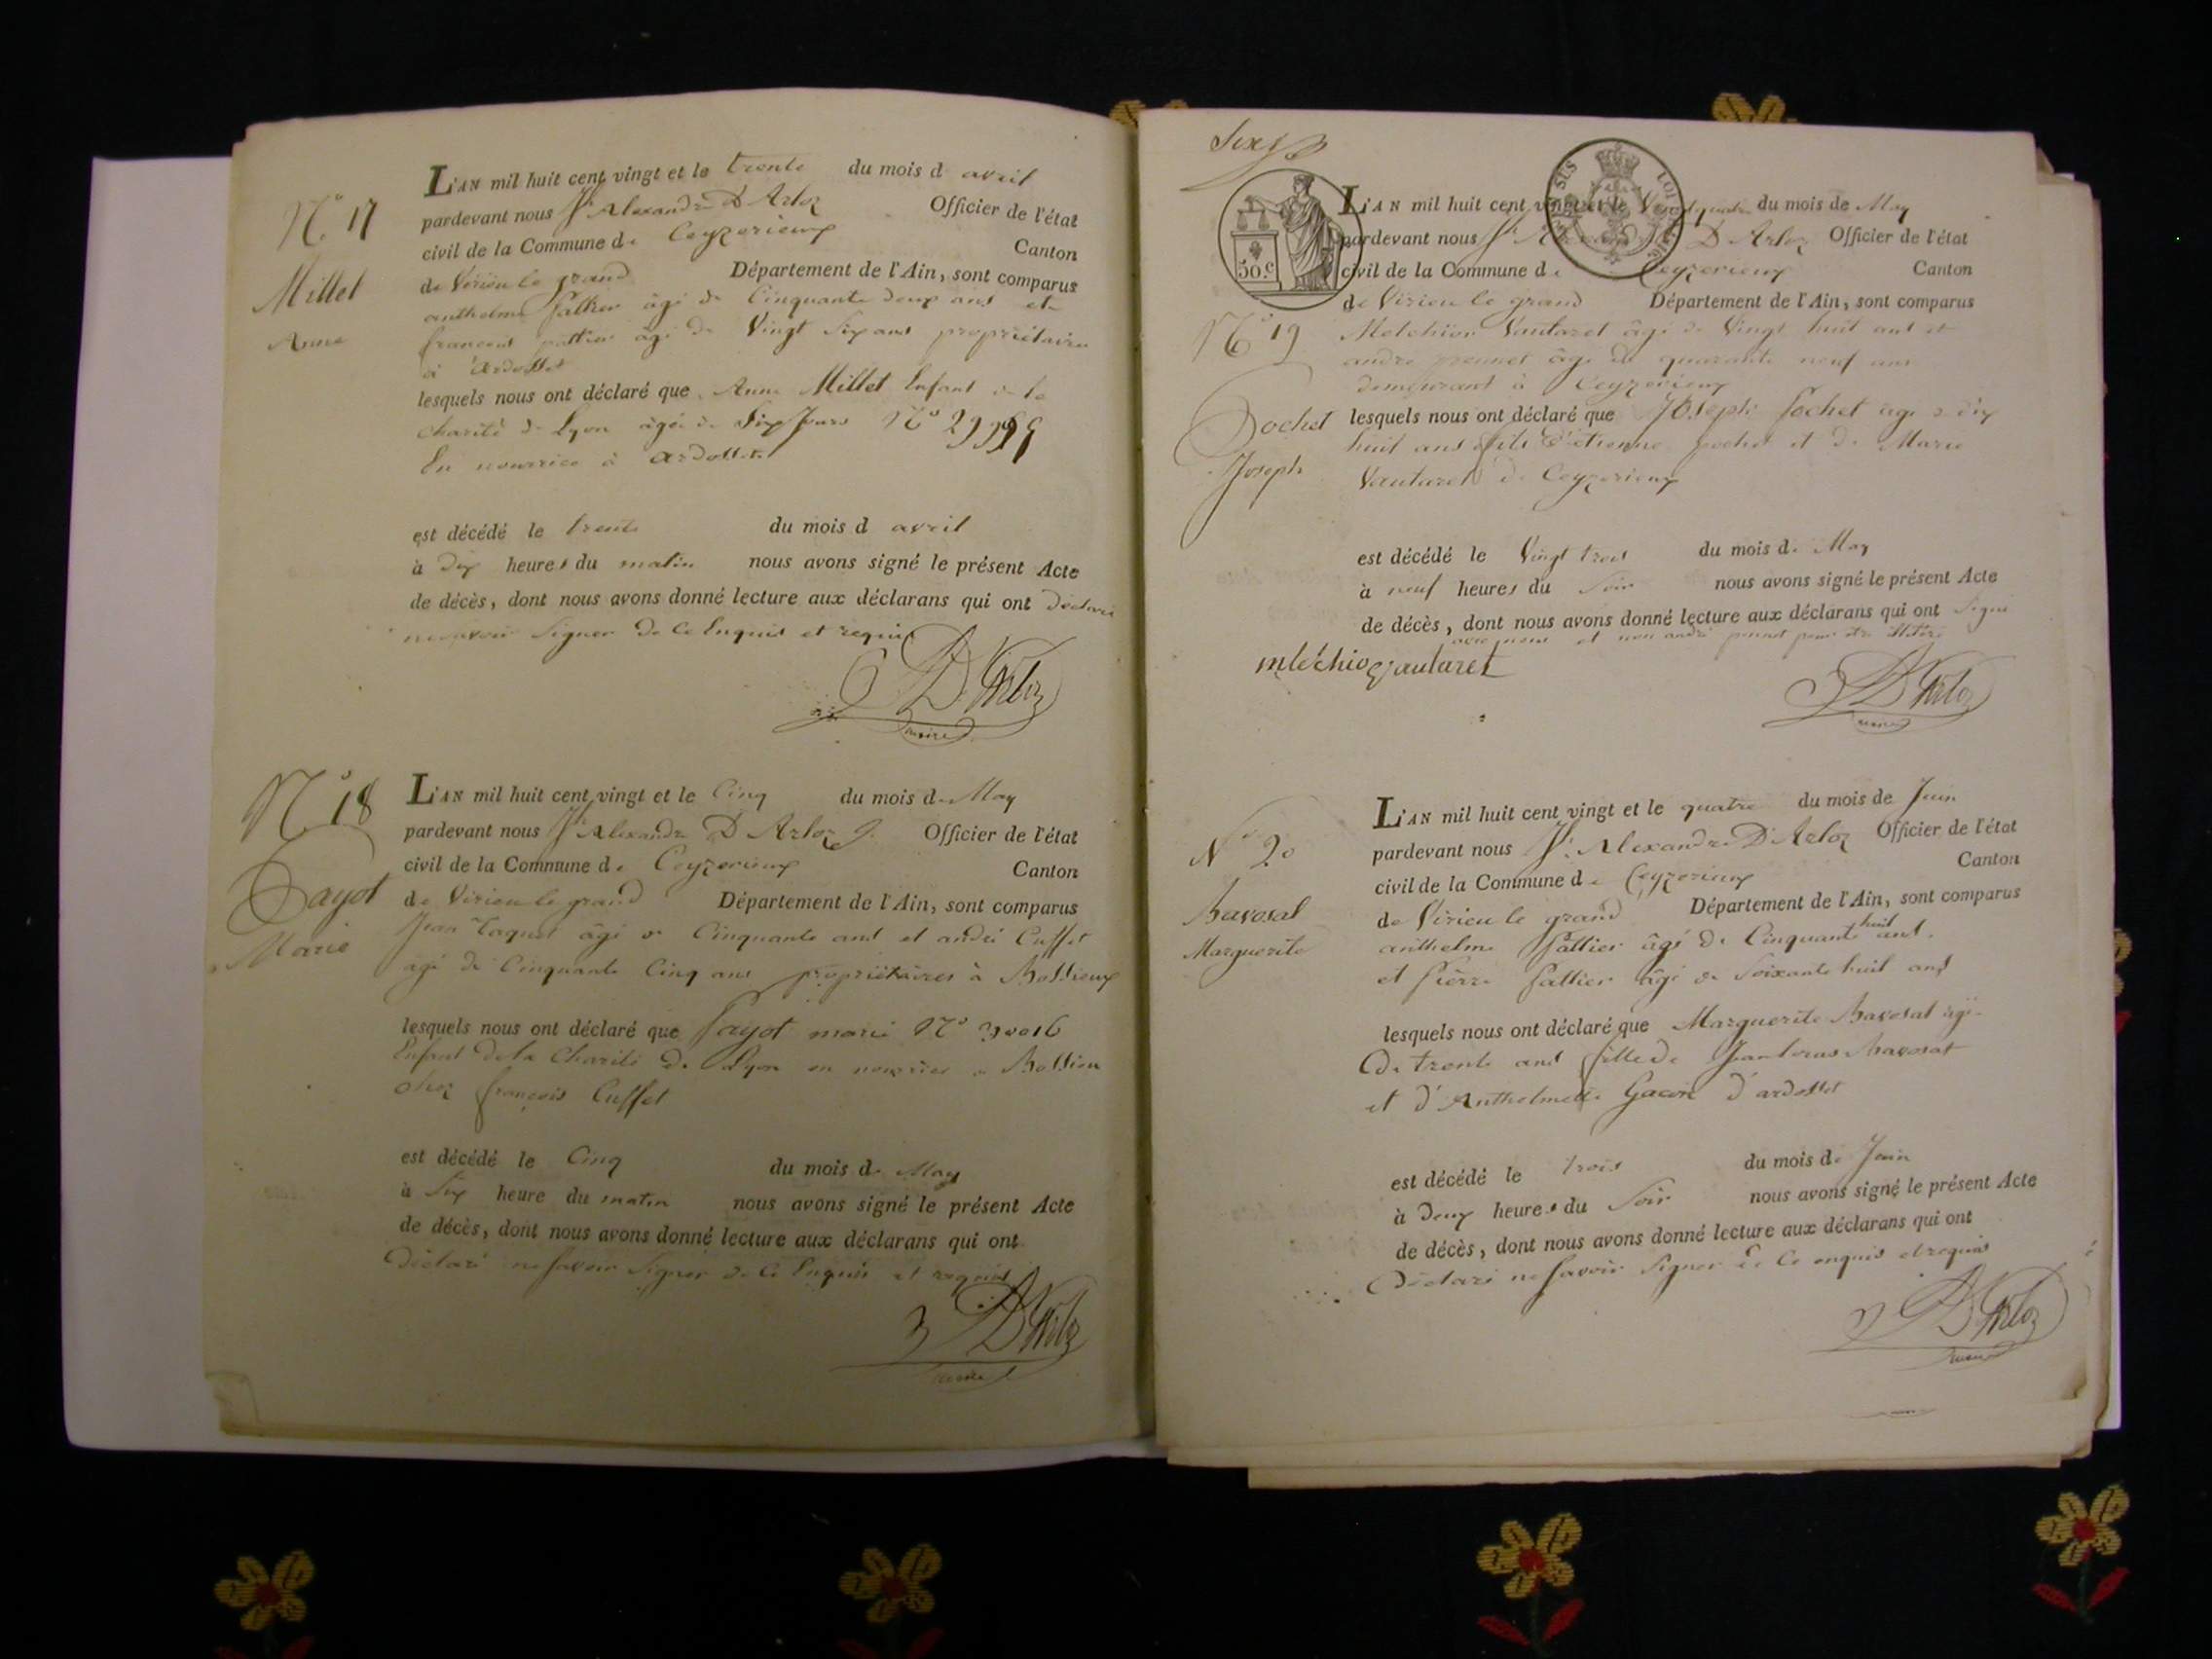 N° 17
Millet
Anne
L'AN mil huit cent vingt et le trente du mois d avril
pardevant nous Jh Alexandre D'Arloz Officier de l'état
civil de la Commune de Ceyzerieux Canton
de Virieu le grand Département de l'Ain, sont comparus
anthelme Pallier âgé de Cinquante deux ans et
françois pallier âgé de Vingt Six ans propriétaires
à ardosset
lesquels nous ont déclaré que Anne Millet Enfant de la
charité de Lyon âgée de Six Jours N°
En nourrice à ardosset
est décédé le trente du mois d avril
à dix heures du matin nous avons signé le présent Acte
de décès, dont nous avons donné lecture aux déclarans qui ont déclaré
ne savoir Signer de ce Enquis et requis
D'Arloz
maire
N° 18
Payot
Marie
L'AN mil huit cent vingt et le Cinq du mois de May
pardevant nous Jh Alexandre D'Arloz Officier de l'état
civil de la Commune de Ceyzerieux Canton
de Virieu le grand Département de l'Ain, sont comparus
Jean taquet âgé de Cinquante ans et andré Cuffet
âgé de Cinquante Cinq ans propriétaires à Bossieux
lesquels nous ont déclaré que Payot marie N° 30016
Enfant de la Charité de Lyon en nourrice à Bossieu
chez françois Cuffet
est décédé le Cinq du mois de May
à Six heure du matin nous avons signé le présent Acte
de décès, dont nous avons donné lecture aux déclarans qui ont
Déclaré ne Savoir Signer de ce Enquis et requis
D'Arloz
maire
Six
50.c
L'AN mil huit cent vingt et le Vingt quatre du mois de May
pardevant nous Jh Alexandre D'Arloz Officier de l'état
civil de la Commune de Ceyzerieux Canton
de Virieu le grand Département de l'Ain, sont comparus
N° 19
Pochet
Joseph
Melchior Vautaret âgé de Vingt huit ans et
andré âgé de quarante neuf ans
demeurant à Ceyzerieux
lesquels nous ont déclaré que Joseph Pochet âgé de dix
huit ans fils d'étienne pochet et de Marie
Vautaret de Ceyzerieux
est décédé le Vingt trois du mois de May
à neuf heures du Soir nous avons signé le présent Acte
de décès, dont nous avons donné lecture aux déclarans qui ont Signé
avec nous et non andré pour être illitéré
mléchior vautaret
D'Arloz
maire
N° 20
Bavosat
Marguerite
L'AN mil huit cent vingt et le quatre du mois de Juin
pardevant nous Jh Alexandre D'Arloz Officier de l'état
civil de la Commune de Ceyzerieux Canton
de Virieu le grand Département de l'Ain, sont comparus
anthelme Pallier âgé de Cinquante huit ans
et Pierre Pallier âgé de Soixante huit ans
lesquels nous ont déclaré que Marguerite Bavosat âgé
De trente ans fille de Bavosat
et d'Anthelmette Gacon d'ardosset
est décédé le trois du mois de Juin
à Deux heures du Soir nous avons signé le présent Acte
de décès, dont nous avons donné lecture aux déclarans qui ont
Déclaré ne Savoir Signer de Ce enquis et requis
D'Arloz
maire